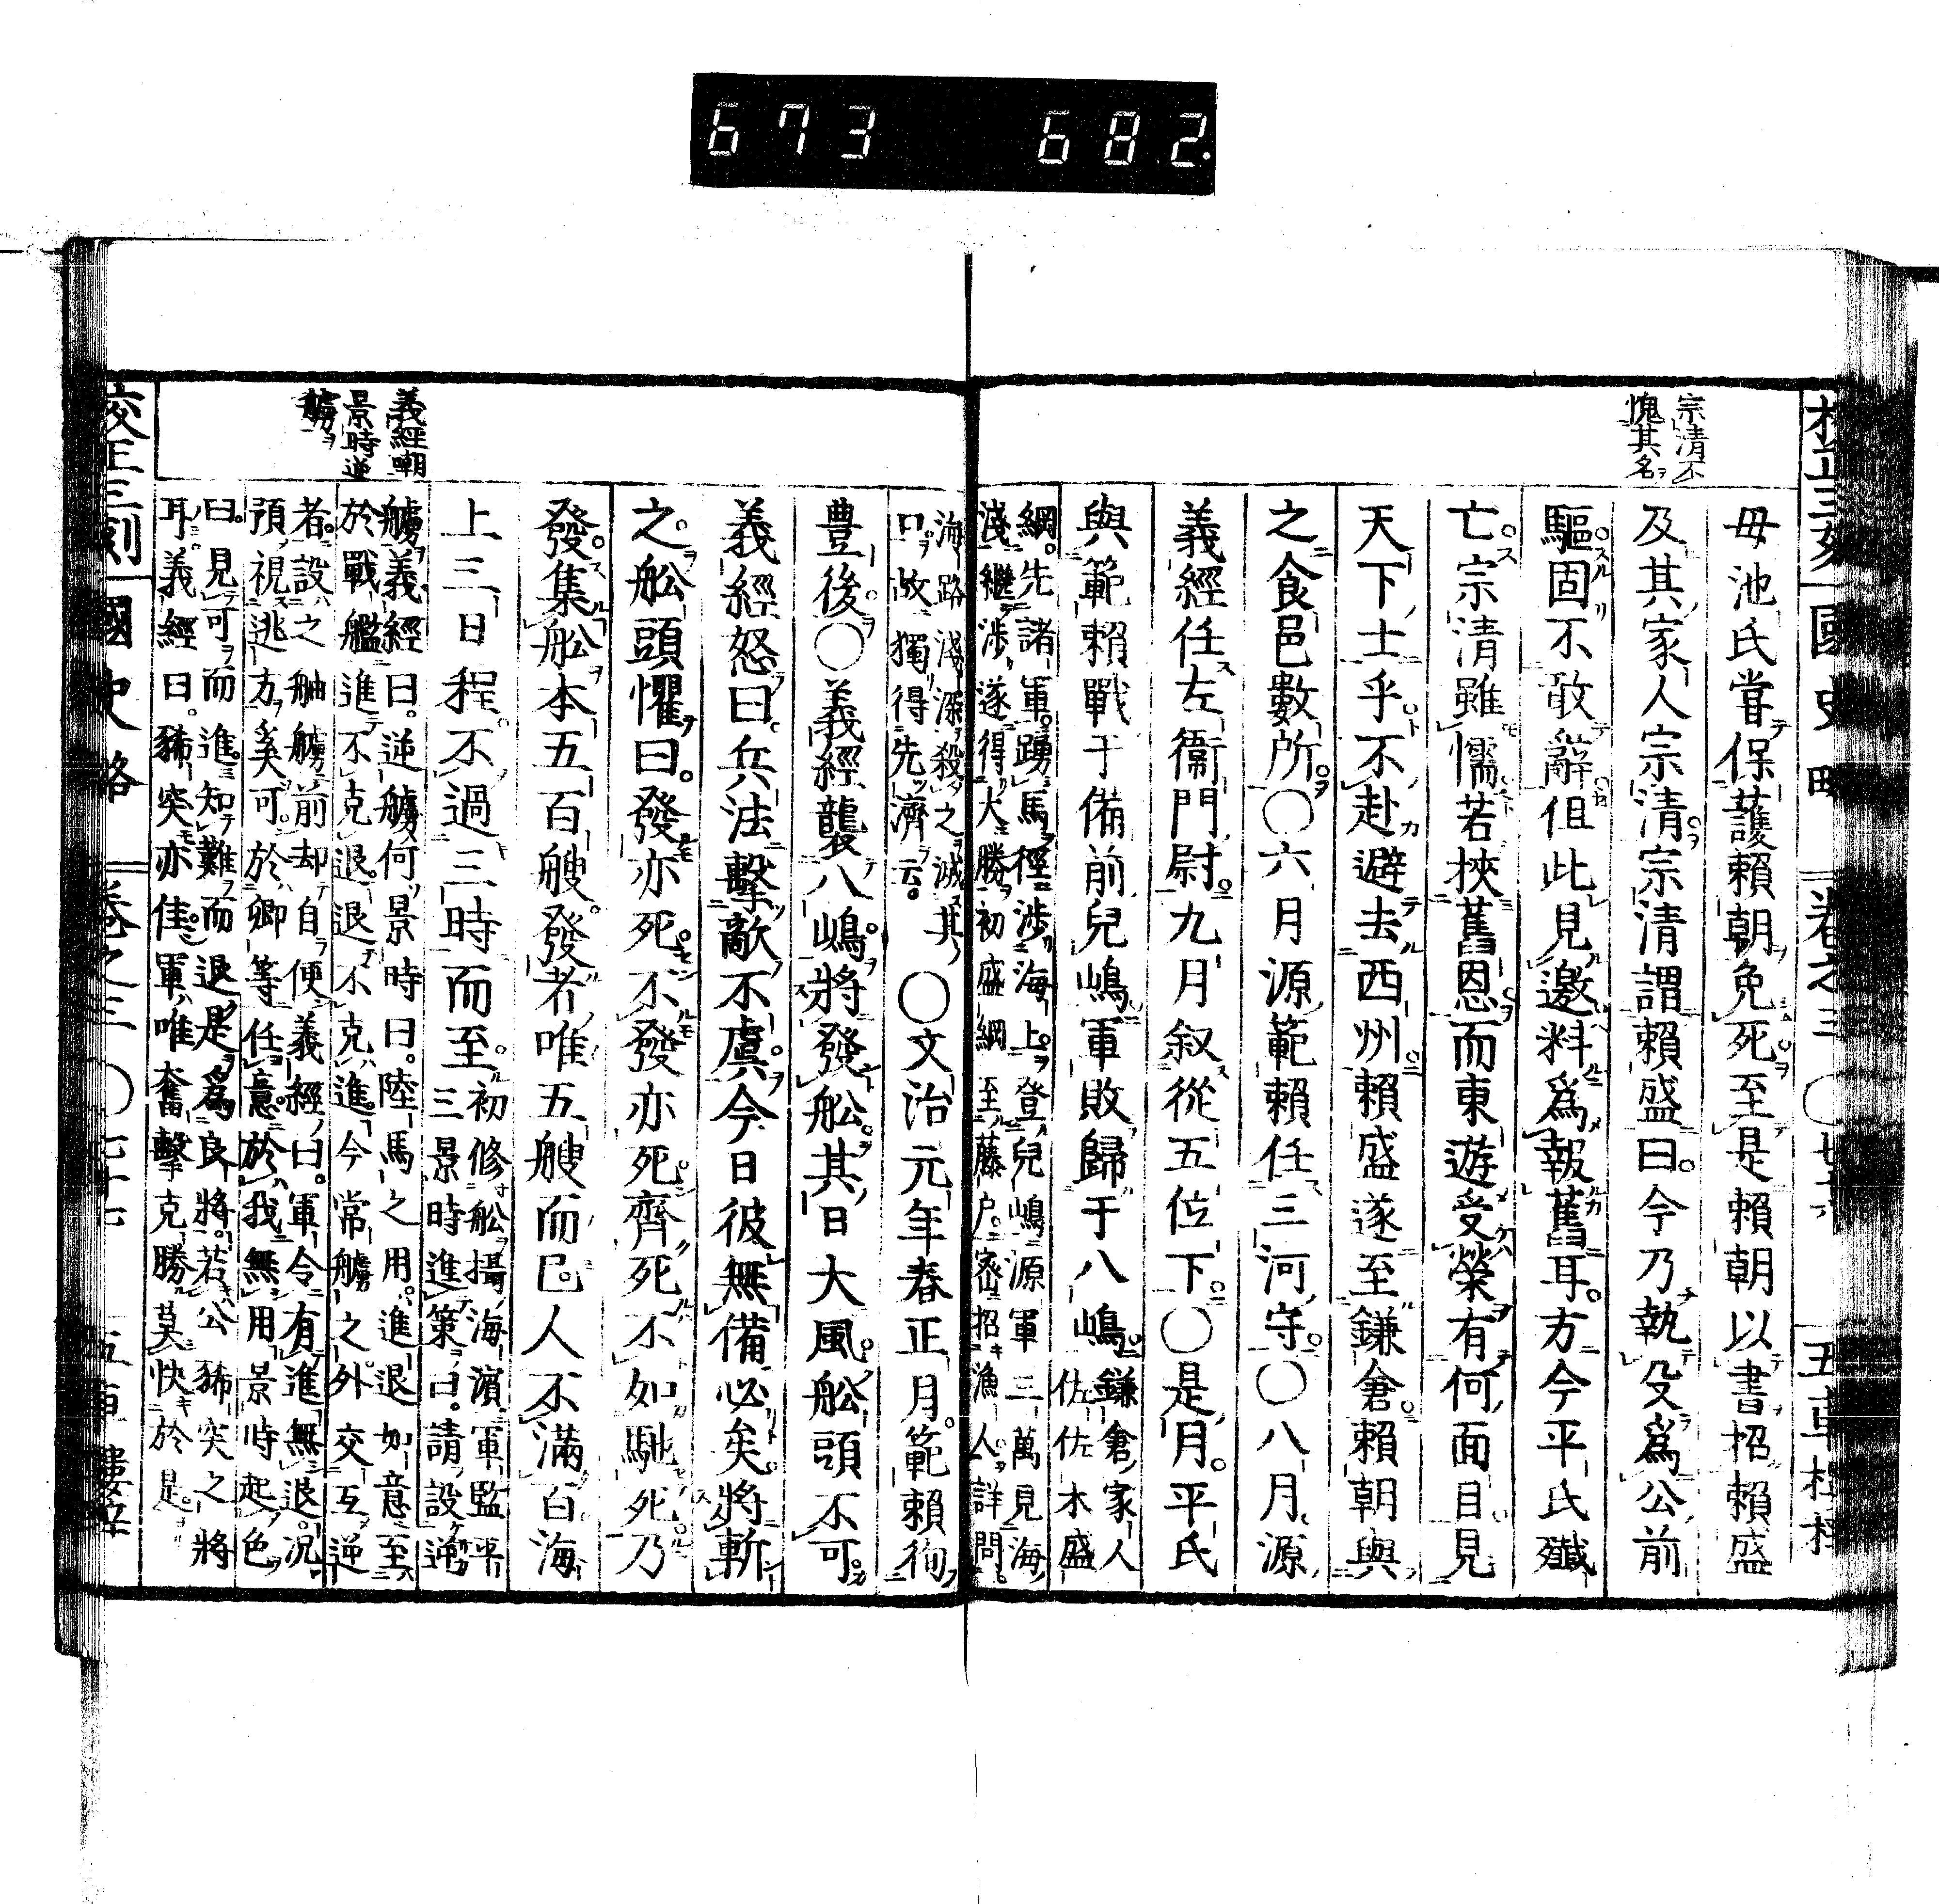 673 682.
校正三刻 國史略 卷之三 〇七十六 五車樓梓
宗清不
愧其名
母池氏嘗保護賴朝免死至是賴朝以書招賴盛
及其家人宗清宗清謂賴盛曰今乃執殳爲公前
驅固不敢辭但此見邀料爲報舊耳方今平氏殲
亡宗清雖懦若挾舊恩而東遊受榮有何面目見
天下士乎不赴避去西州賴盛遂至鎌倉賴朝與
之食邑數所〇六月源範賴任三河守〇八月源
義經任左衞門尉九月叙從五位下〇是月平氏
與範賴戰于備前兒嶋軍敗歸于八嶋鎌倉家人
佐佐木盛
綱先諸軍踴馬徑涉海上登兒嶋源軍三萬見海
淺繼涉遂得大勝初盛綱至藤戶密招漁人詳問
海路淺深殺之滅其
口故獨得先濟云
〇文治元年春正月範賴徇
豊後〇義經襲八嶋將發舩其日大風舩頭不可
義經怒曰兵法擊敵不虞今日彼無備必矣將斬
之舩頭懼曰發亦死不發亦死齊死不如馳死乃
發集舩本五百艘發者唯五艘而已人不滿百海
上三日程不過三時而至
初修舩攝海濱軍監平
三景時進策曰請設逆
義經嘲
景時逆
艣
艣義經曰逆艣何景時曰陸馬之用進退如意至
於戰艦進不克退退不克進今常艣之外交互逆
者設之舳艣前却自便義經曰軍令有進無退況
預視逃方奚可於卿等任意於我無用景時起色
曰見可而進知難而退是爲良將若公豨突之將
耳義經曰豨突亦佳軍唯奮擊克勝莫快於是
校正三刻 國史略 卷之三 〇七十七 五車樓梓